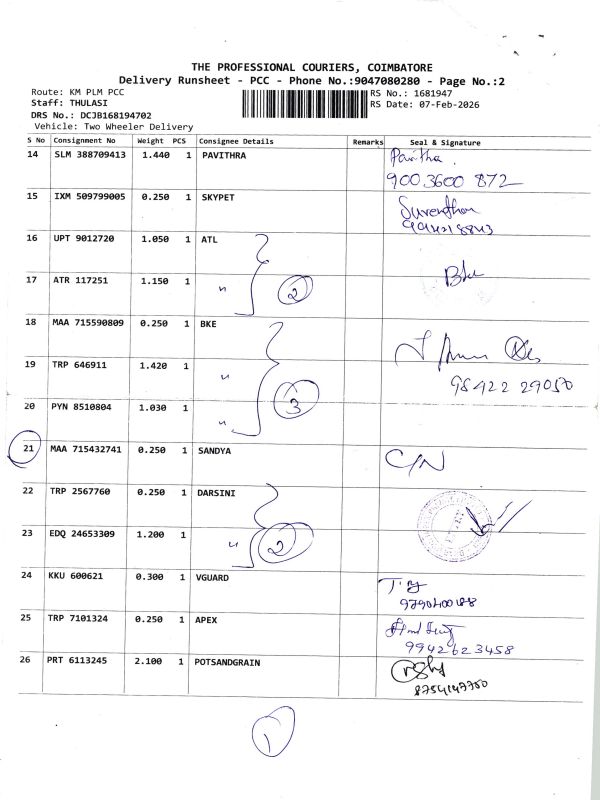 THE PROFESSIONAL COURIERS, COIMBATORE
Delivery Runsheet - PCC - Phone No.:9047080280 - Page No.:2
Route: KM PLM PCC
RS No.: 1681947
Staff: THULASI
RS Date: 07-Feb-2026
DRS No.: DCJB168194702
Vehicle: Two Wheeler Delivery
S No Consignment No Weight PCS Consignee Details Remarks Seal & Signature
14 SLM 388709413 1.440 1 PAVITHRA Pavitha.
9003600 872
15 IXM 509799005 0.250 1 SKYPET
16 UPT 9012720 1.050 1 ATL
17 ATR 117251 1.150 1 " 2 Bke
18 MAA 715590809 0.250 1 BKE
19 TRP 646911 1.420 1 "
98422 29050
20 PYN 8510804 1.030 1 " 3
21 MAA 715432741 0.250 1 SANDYA C/N
22 TRP 2567760 0.250 1 DARSINI
23 EDQ 24653309 1.200 1 " 2
24 KKU 600621 0.300 1 VGUARD
25 TRP 7101324 0.250 1 APEX
9942623458
26 PRT 6113245 2.100 1 POTSANDGRAIN
1